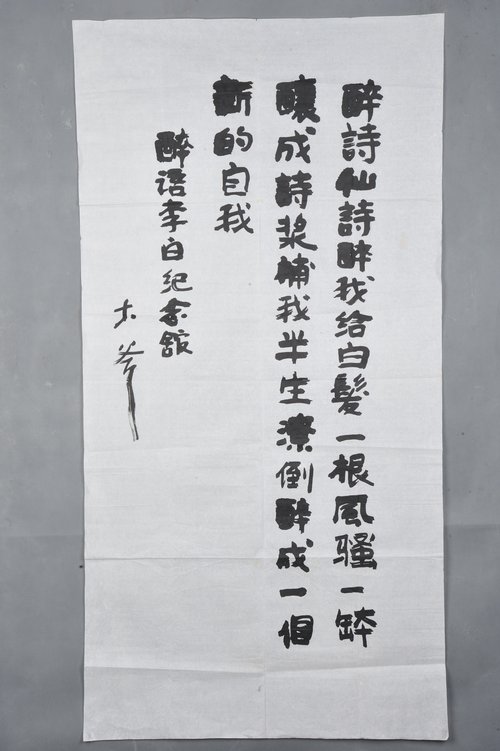 醉詩仙詩醉我给白髮一根風骚一缽
釀成詩浆補我半生潦倒醉成一個
新的自我
醉语李白纪念舘
木斧